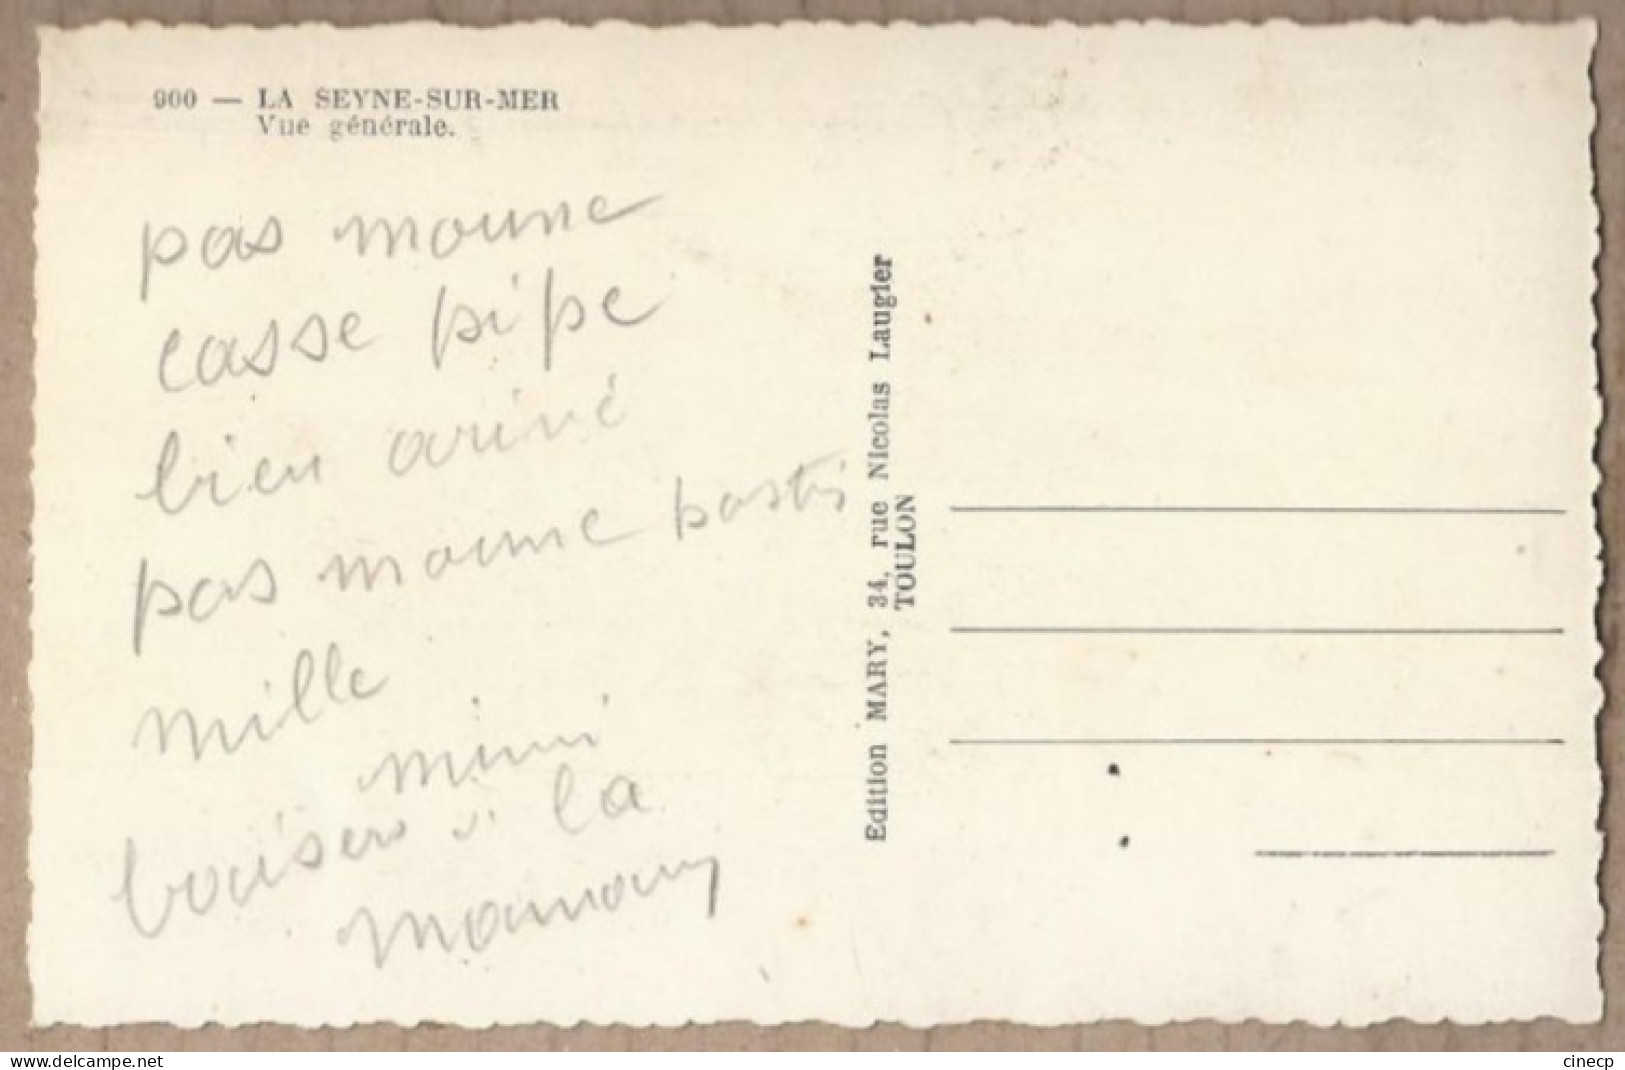 900 — LA SEYNE-SUR-MER
Vue générale.
pas moune
casse pipe
bien arivé
pas moune pastis
mille
mimi
baisers à la
maman
Edition MARY, 34, rue Nicolas Laugier
TOULON
delcampe.net
cinecp